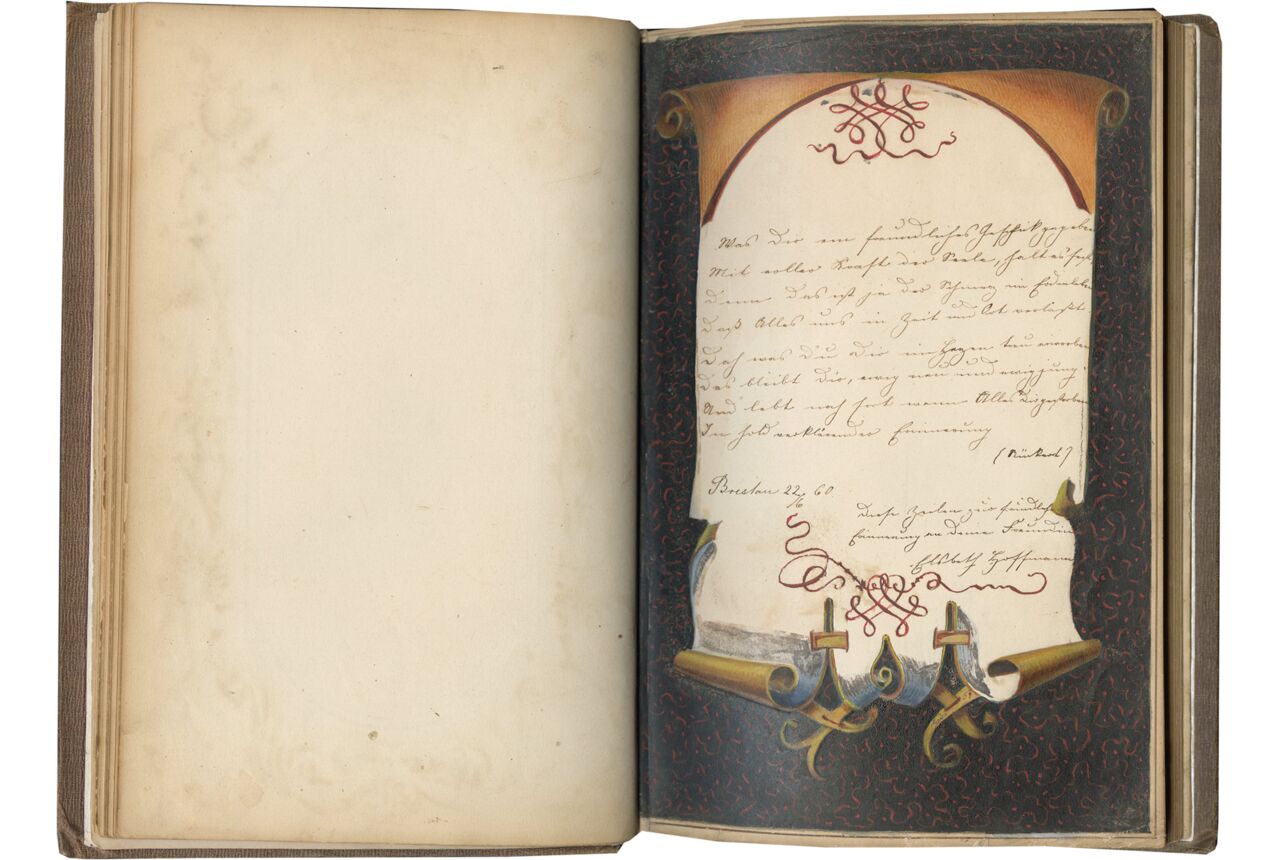 Was Dir ein freundliches Geschik gegeben
Mit voller Kraft der Seele, halt es fest
Denn das ist ja der Schmerz im Erdenleben
Daß Alles uns in Zeit und Ort verläßt.
Doch was Du Dir im Herzen treu erworben
Das bleibt Dir, ewig neü und ewig jung.
Und lebt noch fort wenn Alles Dir gestorben
In hold verklärender Erinnerung
(Rückert)
Breslau 22/6 60.
Diese Zeilen zur freundlichen
Erinnerung an Deine Freundin
Elsbeth Hoffmann